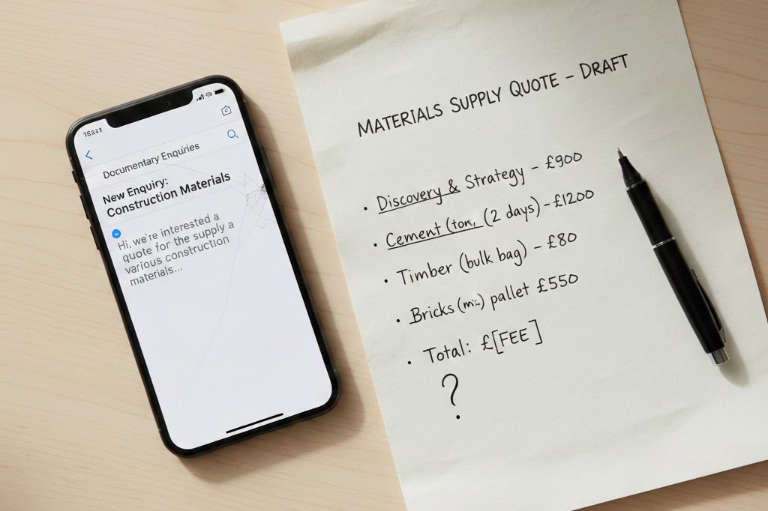 Documentary Enquiries
New Enquiry:
Construction Materials
Hi, we're interested a
quote for the supply a
various construction
materials...
MATERIALS SUPPLY QUOTE – DRAFT
• Discovery & Strategy – £900
• Cement (ton, (2 days) – £1200
• Timber (bulk bag) – £80
• Bricks pallet £550
• Total: £[FEE]
?